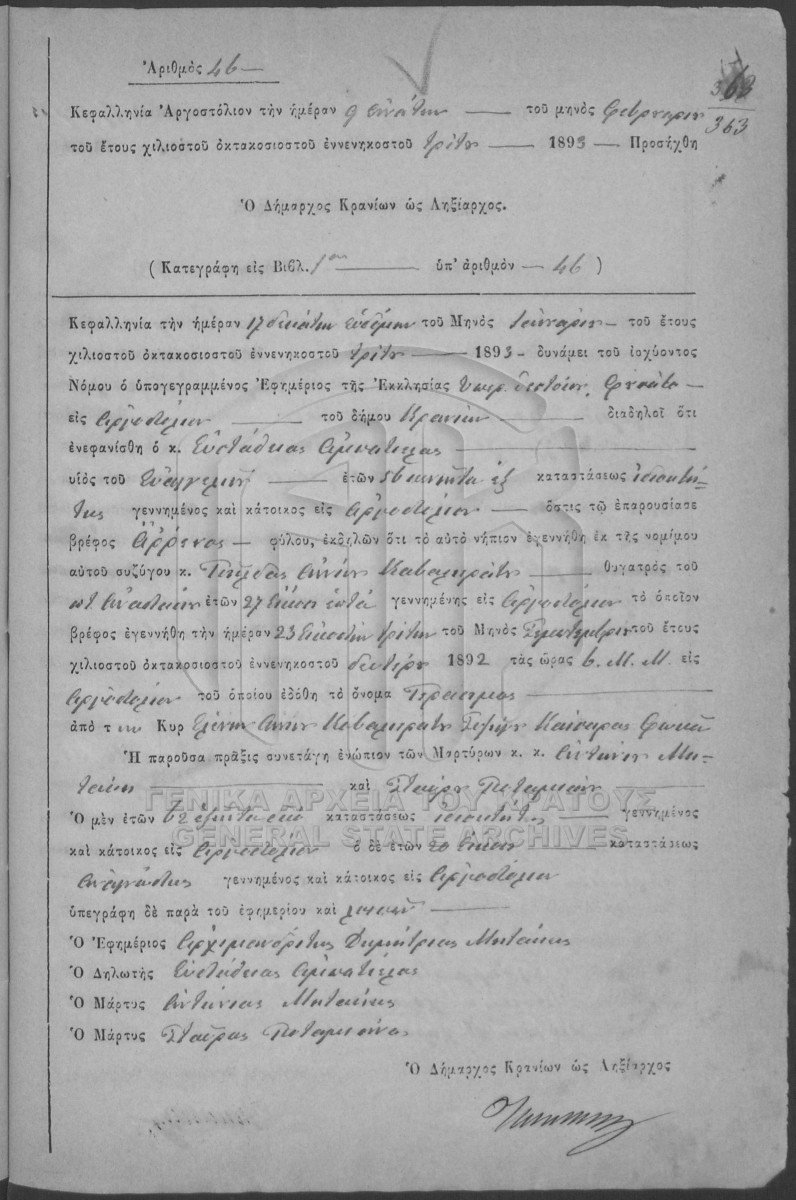 Ἀριθμὸς 46
363
363
Κεφαλληνία Ἀργοστόλιον τὴν ἡμέραν 9 ἐνάτην τοῦ μηνὸς Φεβρουαρίου
τοῦ ἔτους χιλιοστοῦ ὀκτακοσιοστοῦ ἐννενηκοστοῦ τρίτου 1893 Προσήχθη
Ὁ Δήμαρχος Κρανίων ὡς Ληξίαρχος.
(Κατεγράφη εἰς Βιβλ. 1ον ὑπ' ἀριθμὸν 46)
Κεφαλληνία τὴν ἡμέραν 17 δεκάτην ἑβδόμην τοῦ Μηνὸς Ἰαννουαρίου τοῦ ἔτους
χιλιοστοῦ ὀκτακοσιοστοῦ ἐννενηκοστοῦ τρίτου 1893 δυνάμει τοῦ ἰσχύοντος
Νόμου ὁ ὑπογεγραμμένος Ἐφημέριος τῆς Ἐκκλησίας
εἰς Ἀργοστόλιον τοῦ δήμου Κρανίων διαδηλοῖ ὅτι
ἐνεφανίσθη ὁ κ. Εὐστάθιος Ἀμπατιέλος
υἱὸς τοῦ Εὐαγγελινοῦ ἐτῶν 56 πενῆντα ἓξ καταστάσεως ἰδιοκτή-
της γεννημένος καὶ κάτοικος εἰς Ἀργοστόλιον ὅστις τῷ ἐπαρουσίασε
βρέφος ἄρρενος φύλου, ἐκδηλῶν ὅτι τὸ αὐτὸ νήπιον ἐγεννήθη ἐκ τῆς νομίμου
αὐτοῦ συζύγου κ. Καβαλιεράτου θυγατρὸς τοῦ
ποτὲ Ἀναστασίου ἐτῶν 27 εἴκοσι ἑπτὰ γεννημένης εἰς Ἀργοστόλιον τὸ ὁποῖον
βρέφος ἐγεννήθη τὴν ἡμέραν 23 εἰκοστὴν τρίτην τοῦ Μηνὸς Σεπτεμβρίου τοῦ ἔτους
χιλιοστοῦ ὀκτακοσιοστοῦ ἐννενηκοστοῦ δευτέρου 1892 τὰς ὥρας 6. Μ. Μ. εἰς
Ἀργοστόλιον τοῦ ὁποίου ἐδόθη τὸ ὄνομα Γεράσιμος
ἀπὸ τ ην Κυρ Ἑλένην Καβαλιεράτου Καίσαρος Φωκᾶ
Ἡ παροῦσα πρᾶξις συνετάγη ἐνώπιον τῶν Μαρτύρων κ. κ. Ἀντωνίου Μη-
τσάκη καὶ Σταύρου Ποταμιάνου
Ὁ μὲν ἐτῶν 62 ἑξῆντα δύο καταστάσεως ἰδιοκτήτης γεννημένος
καὶ κάτοικος εἰς Ἀργοστόλιον ὁ δὲ ἐτῶν 20 εἴκοσι καταστάσεως
ἀναγνώστης γεννημένος καὶ κάτοικος εἰς Ἀργοστόλιον
ὑπεγράφη δὲ παρὰ τοῦ ἐφημερίου καὶ λοιπῶν
Ὁ Ἐφημέριος Ἀρχιμανδρίτης Δημήτριος Μητσάκης
Ὁ Δηλωτὴς Εὐστάθιος Ἀμπατιέλος
Ὁ Μάρτυς Ἀντώνιος Μητσάκης
Ὁ Μάρτυς Σταῦρος Ποταμιάνος
Ὁ Δήμαρχος Κρανίων ὡς Ληξίαρχος
ΓΕΝΙΚΑ ΑΡΧΕΙΑ ΤΟΥ ΚΡΑΤΟΥΣ
GENERAL STATE ARCHIVES